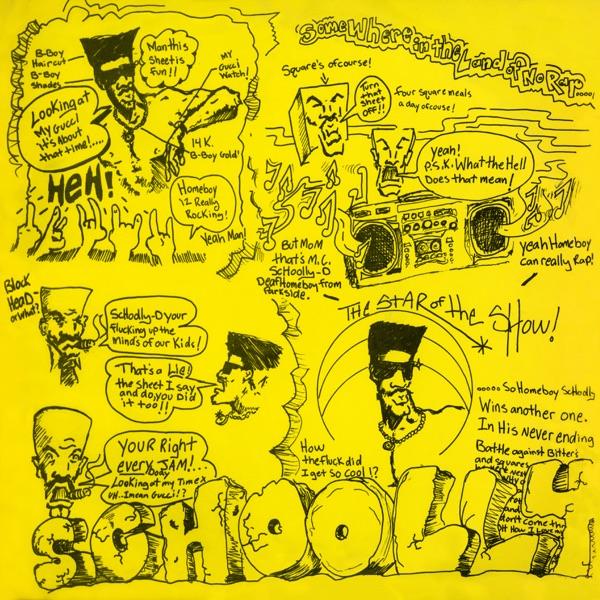 B-Boy
Haircut
B-Boy
Shades
Man this
Sheet is
fun!!
MY
Gucci
Watch!
Looking at
My Gucci
It's About
that time!.....
14 K.
B-Boy Gold!
HeH!
Homeboy
iz Really
Rocking!
Yeah Man!
Somewhere in the Land of No Rap.....
Square's of course!
Turn
that
Sheet
OFF!!
four Square meals
a day ofcouse!
Yeah!
P.S.K. What the Hell
Does that mean!
But Mom
that's M.C.
Schoolly-D
Deaf Homeboy from
Parkside.
yeah Homeboy
can really Rap!
Block
Head-
or what?
Schoolly-D your
flucking up the
minds of our Kids!
That's a Lie!
the Sheet I say
and do, you Did
it too!!
YOUR Right
everybody
AM!...
Looking at my Timex
UH..I mean Gucci!?
THE STAR of the Show!
How
the fluck did
I get So Cool!?
..... So Homeboy Schoolly
Wins another one.
In His Never ending
Battle against Bitter's
and squares
and
don't come thr
SCHOOLLY